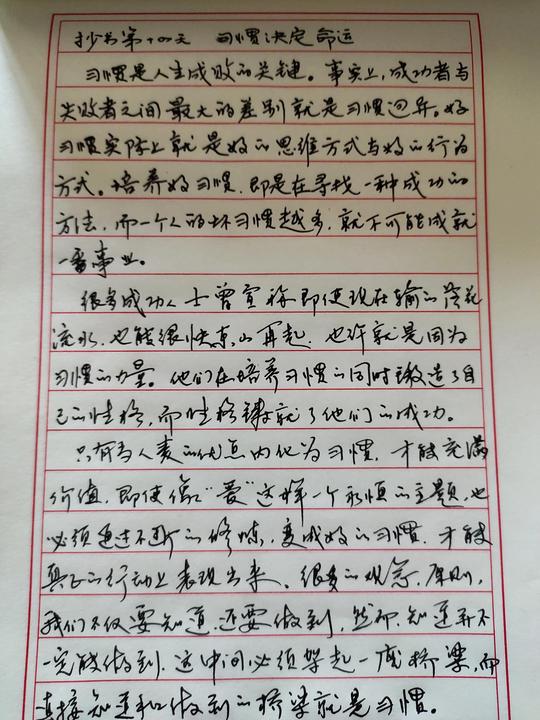 抄书第十四天 习惯决定命运
习惯是人生成败的关键。事实上,成功者与
失败者之间最大的差别就是习惯迥异。好
习惯实际上就是好的思维方式与好的行为
方式。培养好习惯,即是在寻找一种成功的
方法,而一个人的坏习惯越多,就不可能成就
一番事业。
很多成功人士曾宣称即使现在输的落花
流水,也能很快东山再起,也许就是因为
习惯的力量。他们在培养习惯的同时锻造了自
己的性格,而性格铸就了他们的成功。
只有当人类的优点内化为习惯,才能充满
价值,即使像“爱”这样一个永恒的主题,也
必须通过不断的修炼,变成好的习惯,才能
真正的行动上表现出来。很多的观念、原则,
我们不仅要知道,还要做到,然而,知道并不
一定能做到,这中间必须架起一座桥梁,而
连接知道和做到的桥梁就是习惯。